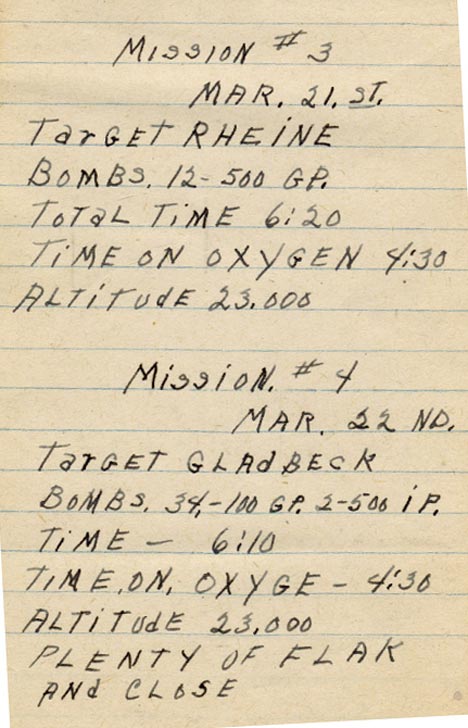 MISSION # 3
MAR. 21. ST.
TarGET RHEINE
BOMBS. 12-500 GP.
TOTAL TIME 6:20
TIME ON OXYGEN 4:30
ALTITUDE 23.000
MISSION. # 4
MAR. 22 ND.
TarGET GLAdBECK
BOMBS. 34,-100 GP. 2-500 iP.
TiME - 6:10
TIME.ON, OXYGE - 4:30
ALTITUdE 23,000
PLENTY OF FLAK
ANd CLOSE